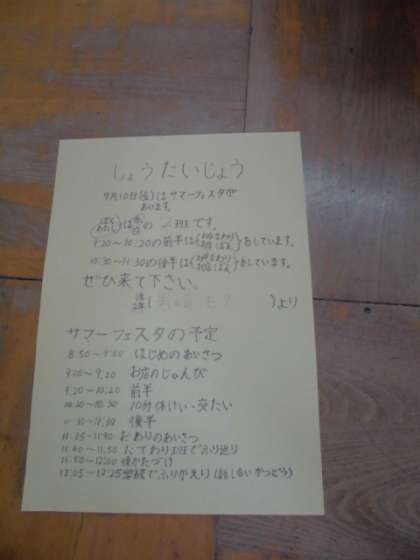 しょうたいじょう
9月10日(金)はサマーフェスタが
あります。
ぼく
わたし は 班です。
9:20~10:20の前半は をしています。
10:30~11:30の後半は をしています。
ぜひ来て下さい。
より
サマーフェスタの予定
8:50~9:00 はじめのあいさつ
9:00~9:20 お店のじゅんび
9:20~10:20 前半
10:20~10:30 10分休けい・交たい
10:30~11:30 後半
11:35~11:40 おわりのあいさつ
11:40~11:50 たてわり班でふり返り
11:50~12:00 後かたづけ
12:05~12:25 でふりかえり